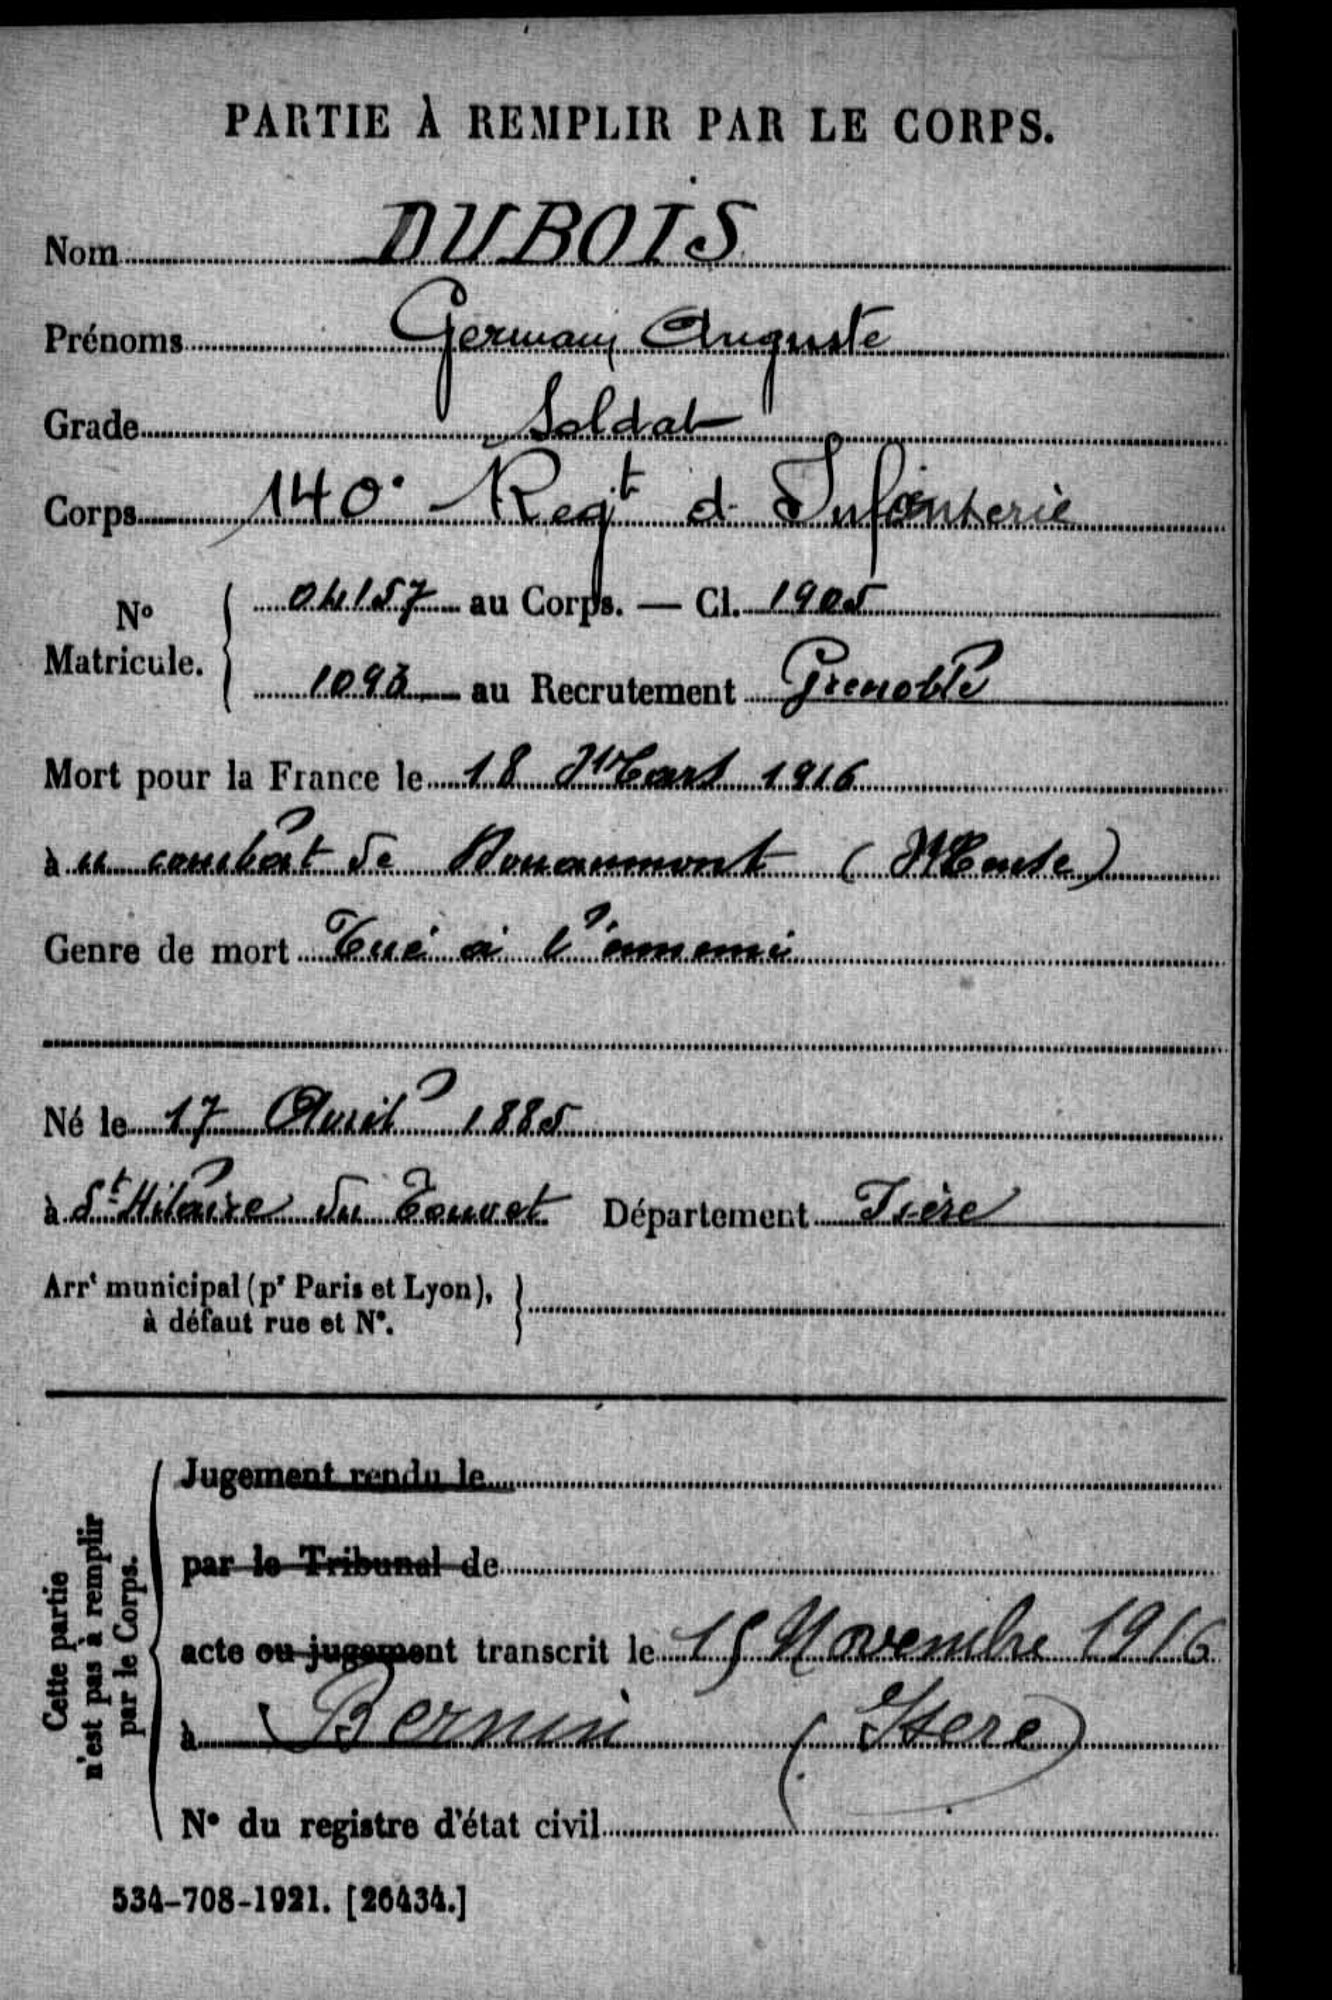 PARTIE À REMPLIR PAR LE CORPS.
Nom DUBOIS
Prénoms Germain Auguste
Grade Soldat
Corps 140e Regt d'Infanterie
No Matricule. 04157 au Corps. — Cl. 1905
1093 au Recrutement Grenoble
Mort pour la France le 18 Mars 1916
à u combat de Douaumont (Meuse)
Genre de mort Tué à l'ennemi
Né le 17 Avril 1885
à St Hilaire du Touvet Département Isère
Arrt municipal (pr Paris et Lyon),
à défaut rue et No.
Cette partie
n'est pas à remplir
par le Corps.
Jugement rendu le
par le Tribunal de
acte ou jugement transcrit le 15 Novembre 1916
à Bernin (Isere)
No du registre d'état civil
534-708-1921. [26434.]